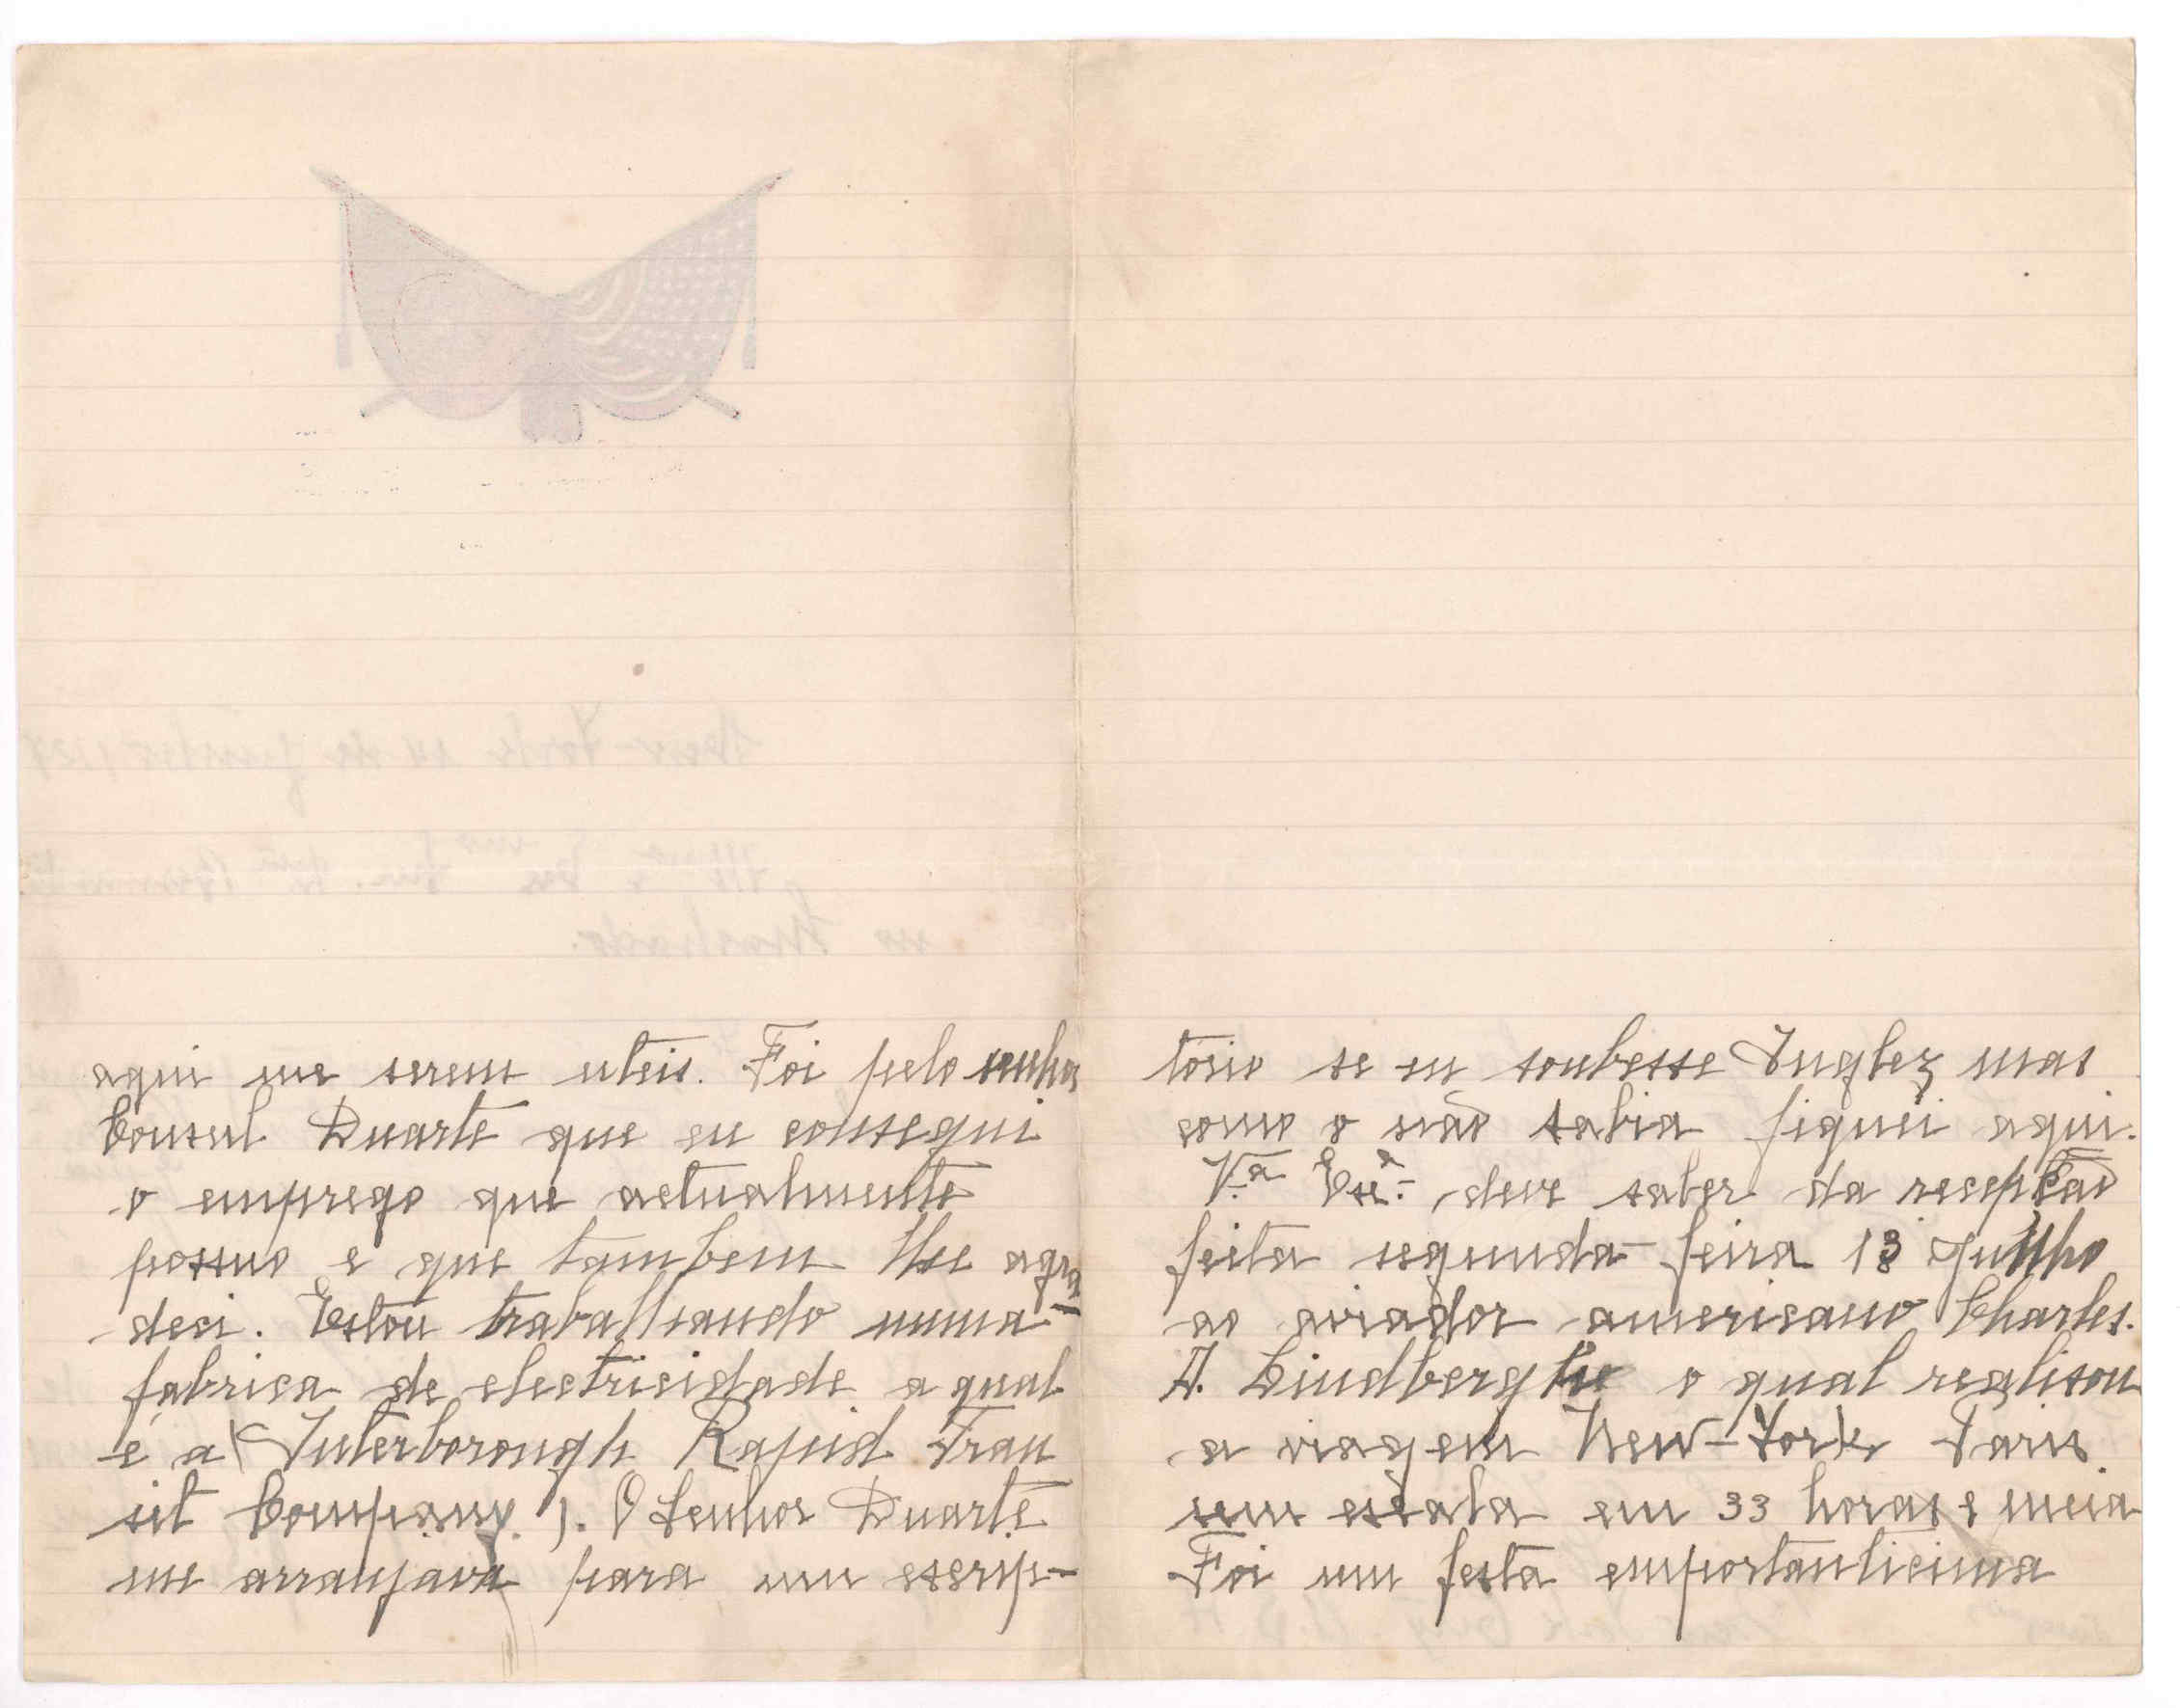 aqui me serem uteis. Foi pelo senhor
Consul Duarte que eu consegui
o emprego que actualmente
possuo e que tambem lhe agra
deci. Estou trabalhando numa
fabrica de electricidade a qual
é a (Interborough Rapid Tran
sit Company.). O Senhor Duarte
me arranjava para um escrip-
torio se eu soubesse Inglez mas
como o não sabia fiquei aqui.
V.ª Exª. deve saber da recepção
feita segunda-feira 13 Junho
ao aviador americano Charles.
A. Lindbergh o qual realisou
a viagem New-York Paris
sem escala em 33 horas e meia
Foi um festa emportanticima